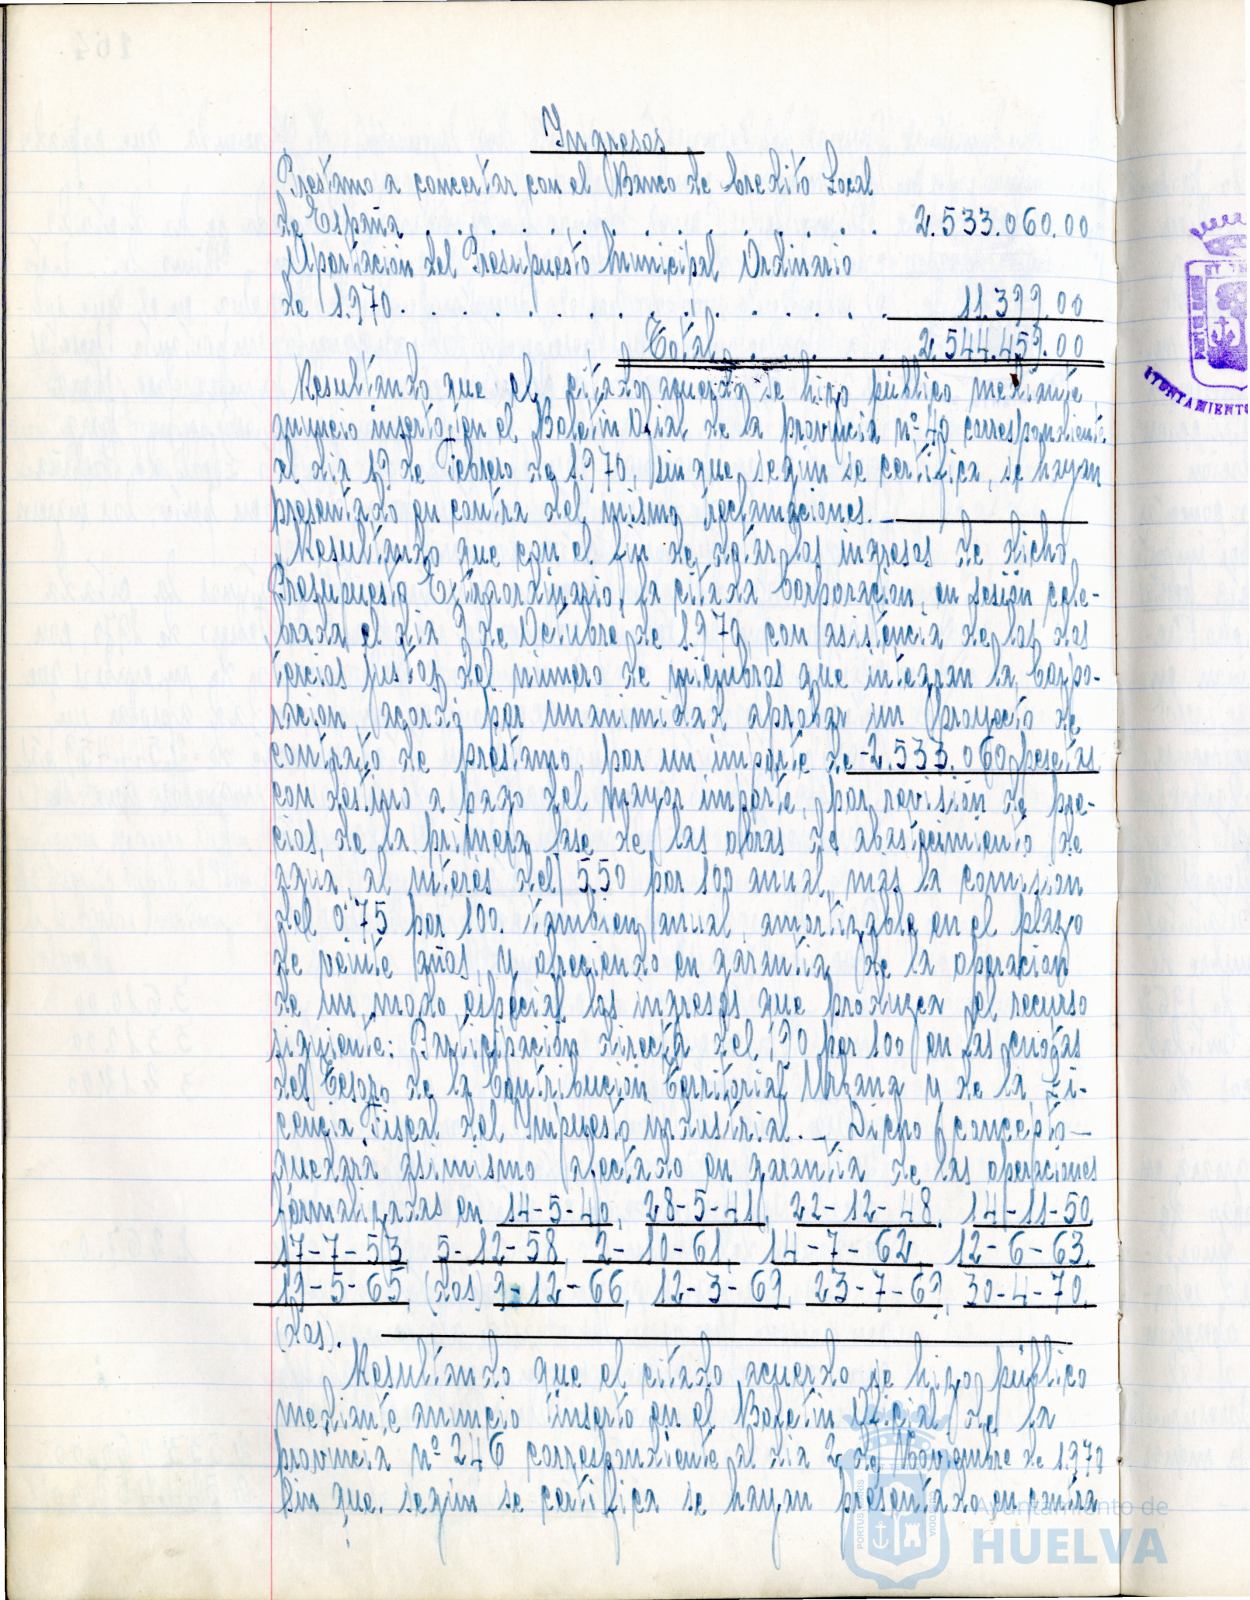 Ingresos
Prestamo a concertar con el Banco de Credito Local
de España . . . . . . . . . . . . . . . 2.533.060.00
Aportación del Presupuesto Municipal Ordinario
de 1.970. . . . . . . . . . . . . . . . 11.399.00
Total . . . . . . 2.544.459.00
Resultando que el citado acuerdo se hizo público mediante
anuncio inserto en el Boletin Oficial de la provincia nº 40 correspondiente
al dia 19 de Febrero de 1.970, sin que, segun se certifica, se hayan
presentado en contra del mismo reclamaciones.
Resultando que con el fin de dotar los ingresos de dicho
Presupuesto Extraordinario, la citada Corporacion, en sesión cele-
brada el dia 9 de Octubre de 1.970, con asistencia de los dos
tercios justos del número de miembros que integran la Corpo-
racion, acordó por unanimidad aprobar un proyecto de
contrato de prestamo, por un importe de -2.533.060 pesetas
con destino a pago del mayor importe, por revisión de pre-
cios, de la primera fase de las obras de abastecimiento de
agua, al interés del 5,50 por 100 anual, más la comision
del 0'75 por 100. tambien anual, amortizable en el plazo
de veinte años, y ofreciendo en garantia de la operacion
de un modo especial los ingresos que produzca el recurso
siguiente: Participación directa del 90 por 100 en las cuotas
del Tesoro de la Contribución Territorial Urbana y de la Li-
cencia Fiscal del Impuesto Industrial. - Dicho concepto -
quedará asimismo afectado en garantia de las operaciones
formalizadas en 14-5-40, 28-5-41, 22-12-48, 14-11-50
17-7-53, 5-12-58, 2-10-61, 14-7-62, 12-6-63,
-5-65, (dos) 9-12-66, 12-3-69, 23-7-69, 30-4-70,
(dos).
Resultando que el citado acuerdo se hizo público
mediante anuncio inserto en el Boletin Oficial de la
provincia nº 246 correspondiente al dia 2 de Noviembre de 1.970
sin que, segun se certifica se hayan presentado en contra
AYUNTAMIENTO
Ayuntamiento de
HUELVA